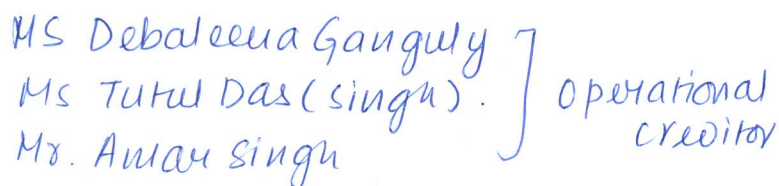 MS Debaleena Ganguly
Ms Tutul Das (Singh).
Mr. Aman Singh
Operational
creditor